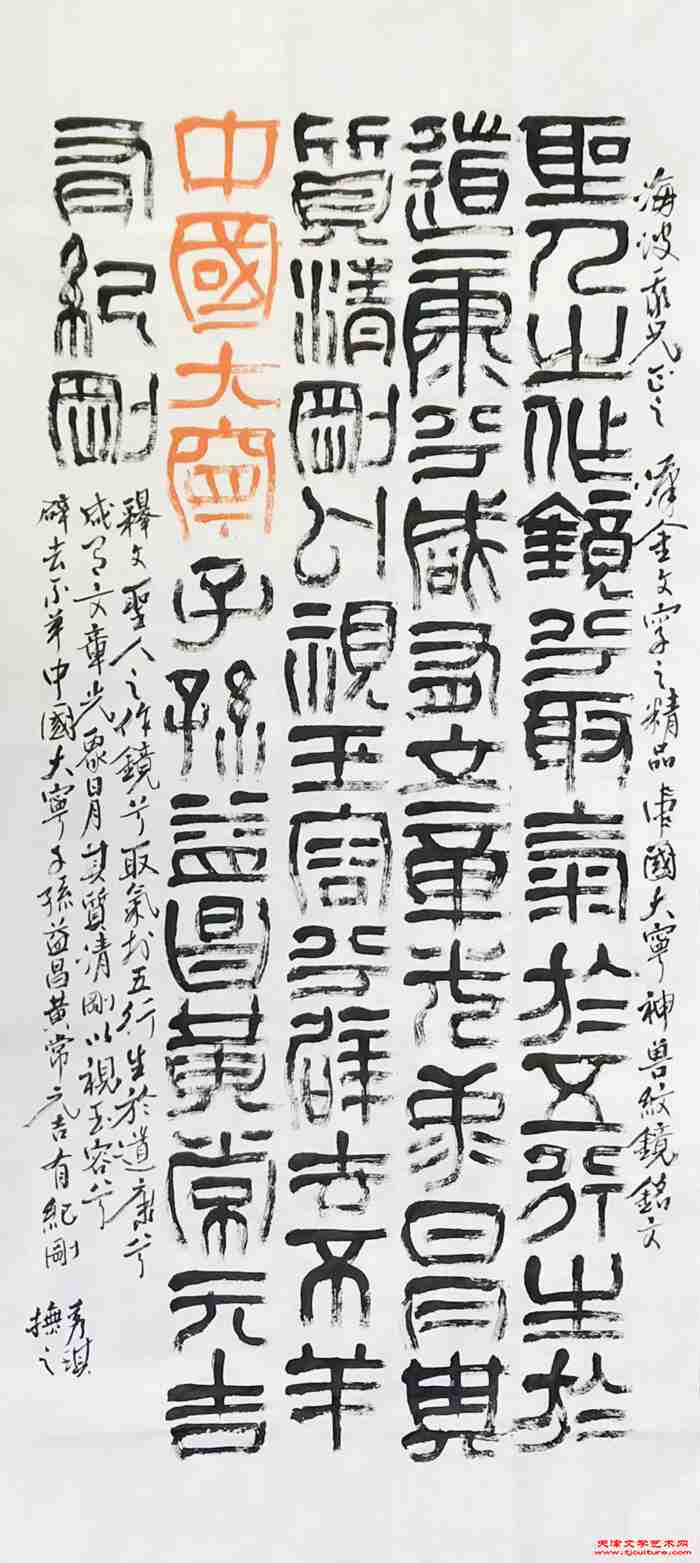 海波 兄正之 漢金文字之精品 中國大寧神兽紋鏡銘文
聖人之作鏡兮取氣於五行生於
道康兮咸有文章光象日月其
質清剛以視玉容兮辟去不羊
中國大寧子孫益昌黄常元吉
有紀剛
釋文聖人之作鏡兮取氣於五行生於道康兮
咸有文章光象日月其質清剛以視玉容兮
辟去不羊中國大寧子孫益昌黄常元吉有紀剛
秀淇
撫之
天津文学艺术网
www.tjculture.com